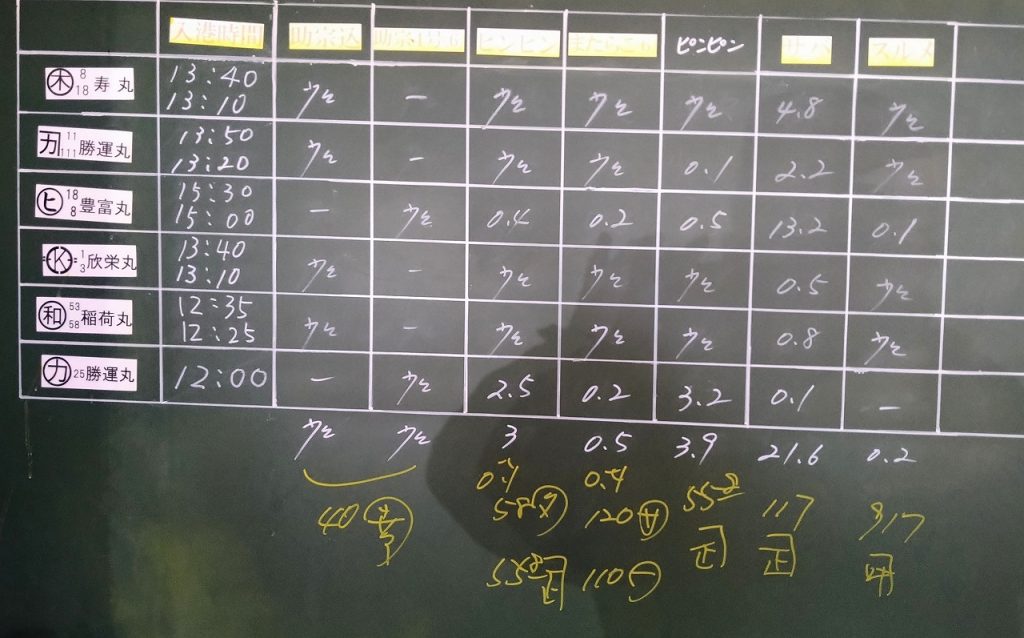 入港時間 助宗込 ピンピン またらこみ ピンピン サバ スルメ
木 8 18 寿丸 13:40 13:10 ウと － ウと ウと ウと 4.8 ウと
カ 11 111 勝運丸 13:50 13:20 ウと － ウと ウと 0.1 2.2 ウと
ヒ 18 8 豊富丸 15:30 15:00 － ウと 0.4 0.2 0.5 13.2 0.1
K 1 3 欣栄丸 13:40 13:10 ウと － ウと ウと ウと 0.5 ウと
和 53 58 稲荷丸 12:35 12:25 ウと － ウと ウと ウと 0.8 ウと
カ 25 勝運丸 12:00 － ウと 2.5 0.2 3.2 0.1 －
ウと ウと 3 0.5 3.9 21.6 0.2
40 58 120 117
110 正 正